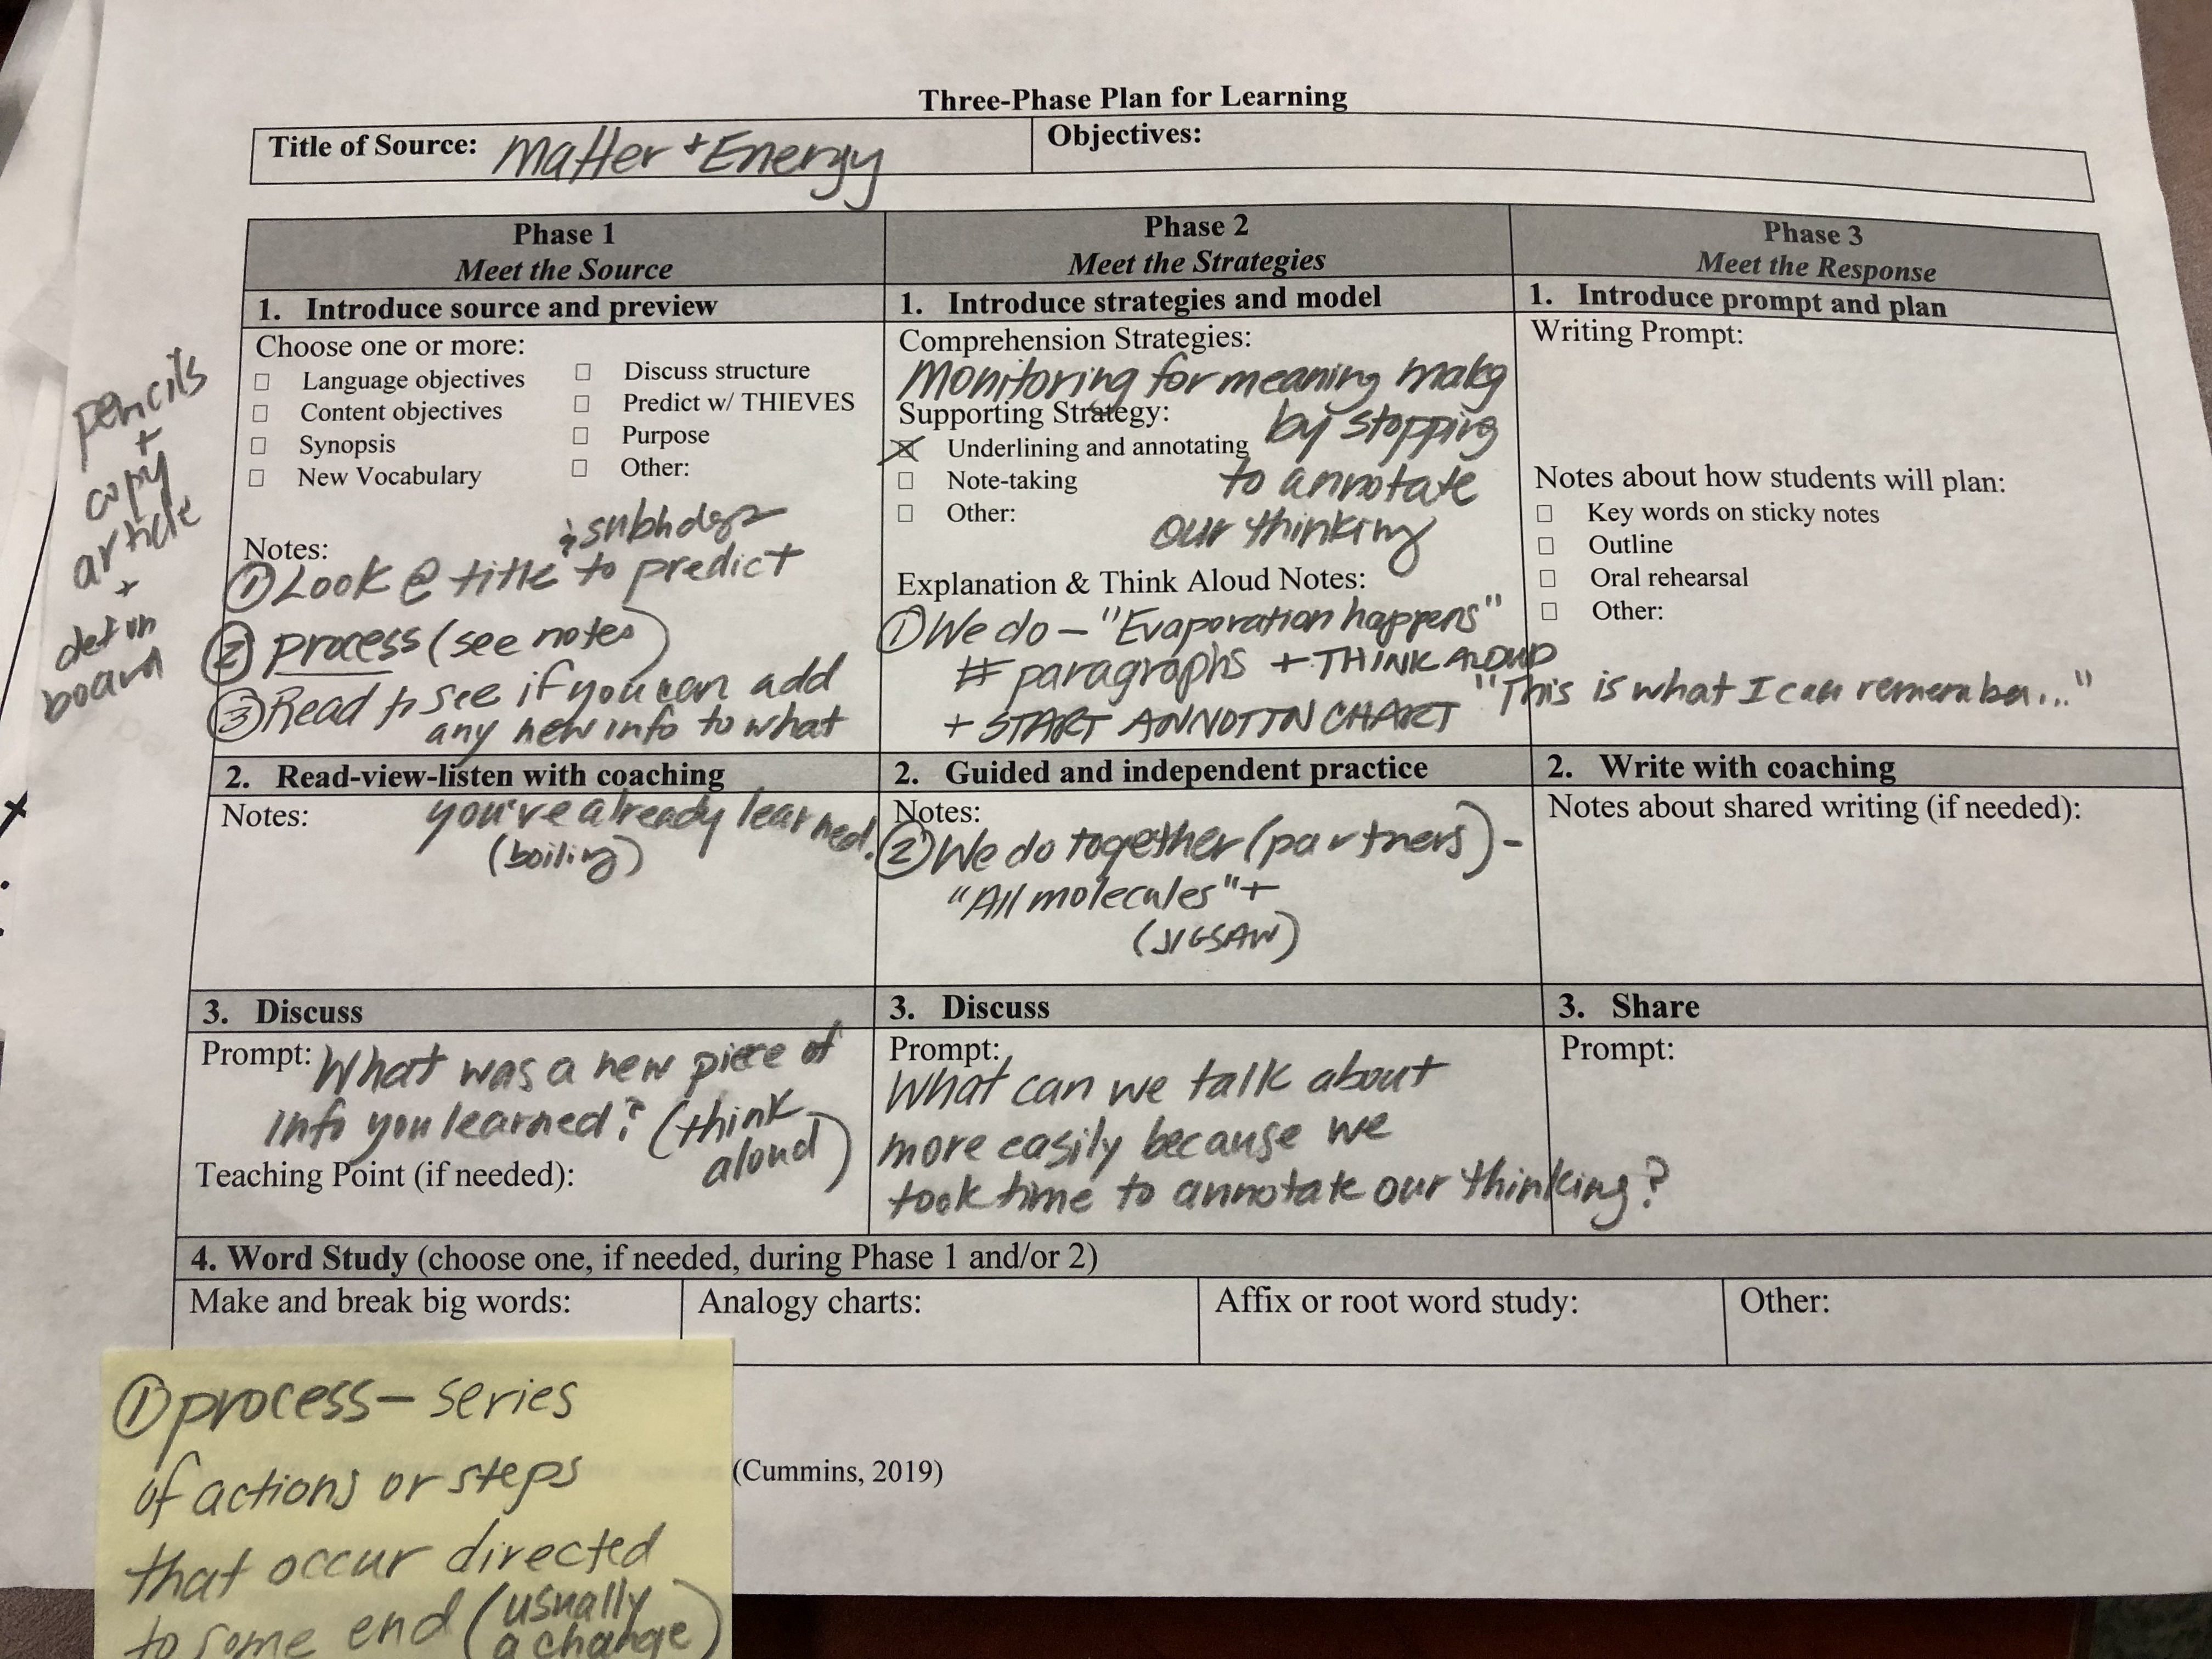 Three-Phase Plan for Learning
Title of Source: Matter + Energy
Objectives:
Phase 1
Meet the Source
1. Introduce source and preview
Choose one or more:
☐ Language objectives
☐ Content objectives
☐ Synopsis
☐ New Vocabulary
☐ Discuss structure
☐ Predict w/ THIEVES
☐ Purpose
☐ Other:
Notes:
① Look @ title to predict
② process (see notes)
③ Read to see if you can add
any new info to what
2. Read-view-listen with coaching
Notes:
you've already learned.
(boiling)
3. Discuss
Prompt: What was a new piece of
info you learned? (think
aloud)
Teaching Point (if needed):
Phase 2
Meet the Strategies
1. Introduce strategies and model
Comprehension Strategies:
Monitoring for meaning makg
by stopping
to annotate
our thinking
Supporting Strategy:
☒ Underlining and annotating
☐ Note-taking
☐ Other:
Explanation & Think Aloud Notes:
① We do – "Evaporation happens"
# paragraphs + THINK ALOUD
"This is what I can remember..."
+ START ANNOTTN CHART
2. Guided and independent practice
Notes:
② We do together (partners) –
"All molecules" +
(JIGSAW)
3. Discuss
Prompt:
What can we talk about
more easily because we
took time to annotate our thinking?
Phase 3
Meet the Response
1. Introduce prompt and plan
Writing Prompt:
Notes about how students will plan:
☐ Key words on sticky notes
☐ Outline
☐ Oral rehearsal
☐ Other:
2. Write with coaching
Notes about shared writing (if needed):
3. Share
Prompt:
4. Word Study (choose one, if needed, during Phase 1 and/or 2)
Make and break big words:
Analogy charts:
Affix or root word study:
Other:
(Cummins, 2019)
pencils
+
copy
article
+
def on
board
① process – series
of actions or steps
that occur directed
to some end (usually
a change)